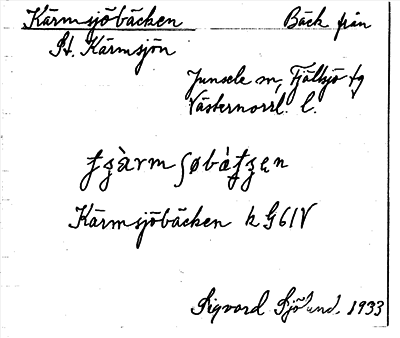 Kärmsjöbäcken Bäck från
St. Kärmsjön
Junsele sn, Fjällsjö tg
Västernorrl. l.
Kärmsjöbäcken k G61V
Sigvard Sjölund. 1933